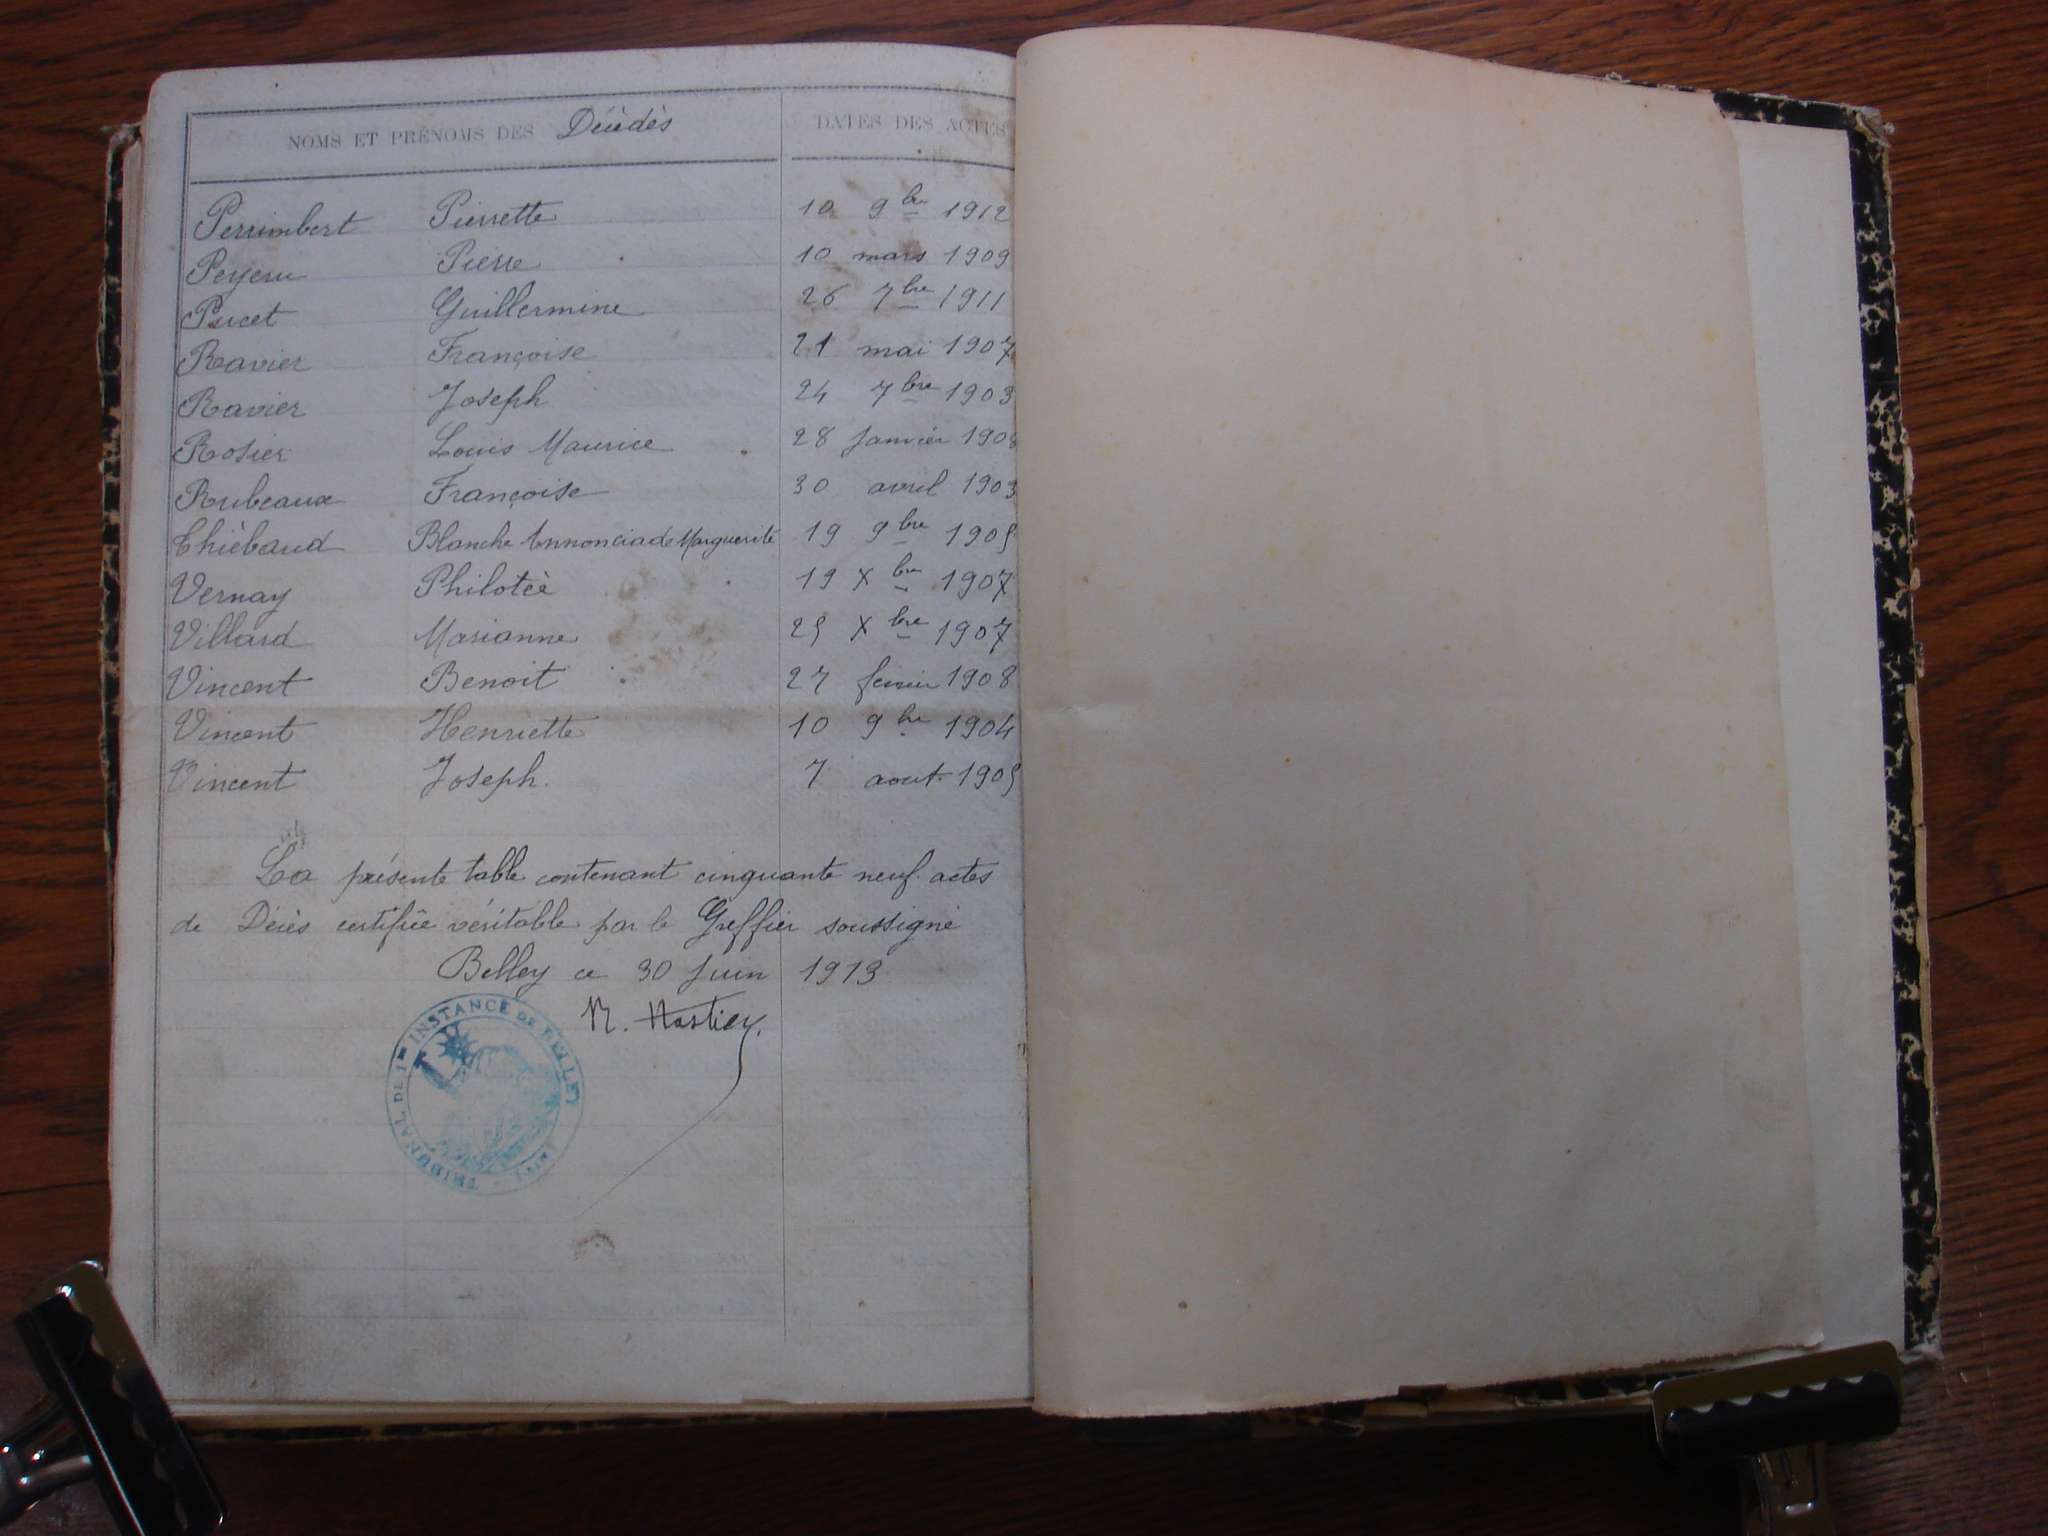 NOMS ET PRÉNOMS DES Décédés DATES DES ACTES
Perrimbert Pierrette 10 9bre 1912
Pierre 10 mars 1909
Pucet Guillermine 26 7bre 1911
Ravier Françoise 21 mai 1907
Ravier Joseph 24 7bre 1903
Rosier Louis Maurice 28 janvier 1908
Rubeaux Françoise 30 avril 1903
Thiébaud Blanche Annonciade Marguerite 19 9bre 1905
Vernay Philotée 19 Xbre 1907
Villard Marianne 25 Xbre 1907
Vincent Benoit 27 février 1908
Vincent Henriette 10 9bre 1904
Vincent Joseph. 7 aout 1905
La présente table contenant cinquante neuf actes
de Décès certifiée véritable par le Greffier soussigné
Belley ce 30 Juin 1913
TRIBUNAL DE 1re INSTANCE DE BELLEY (AIN)